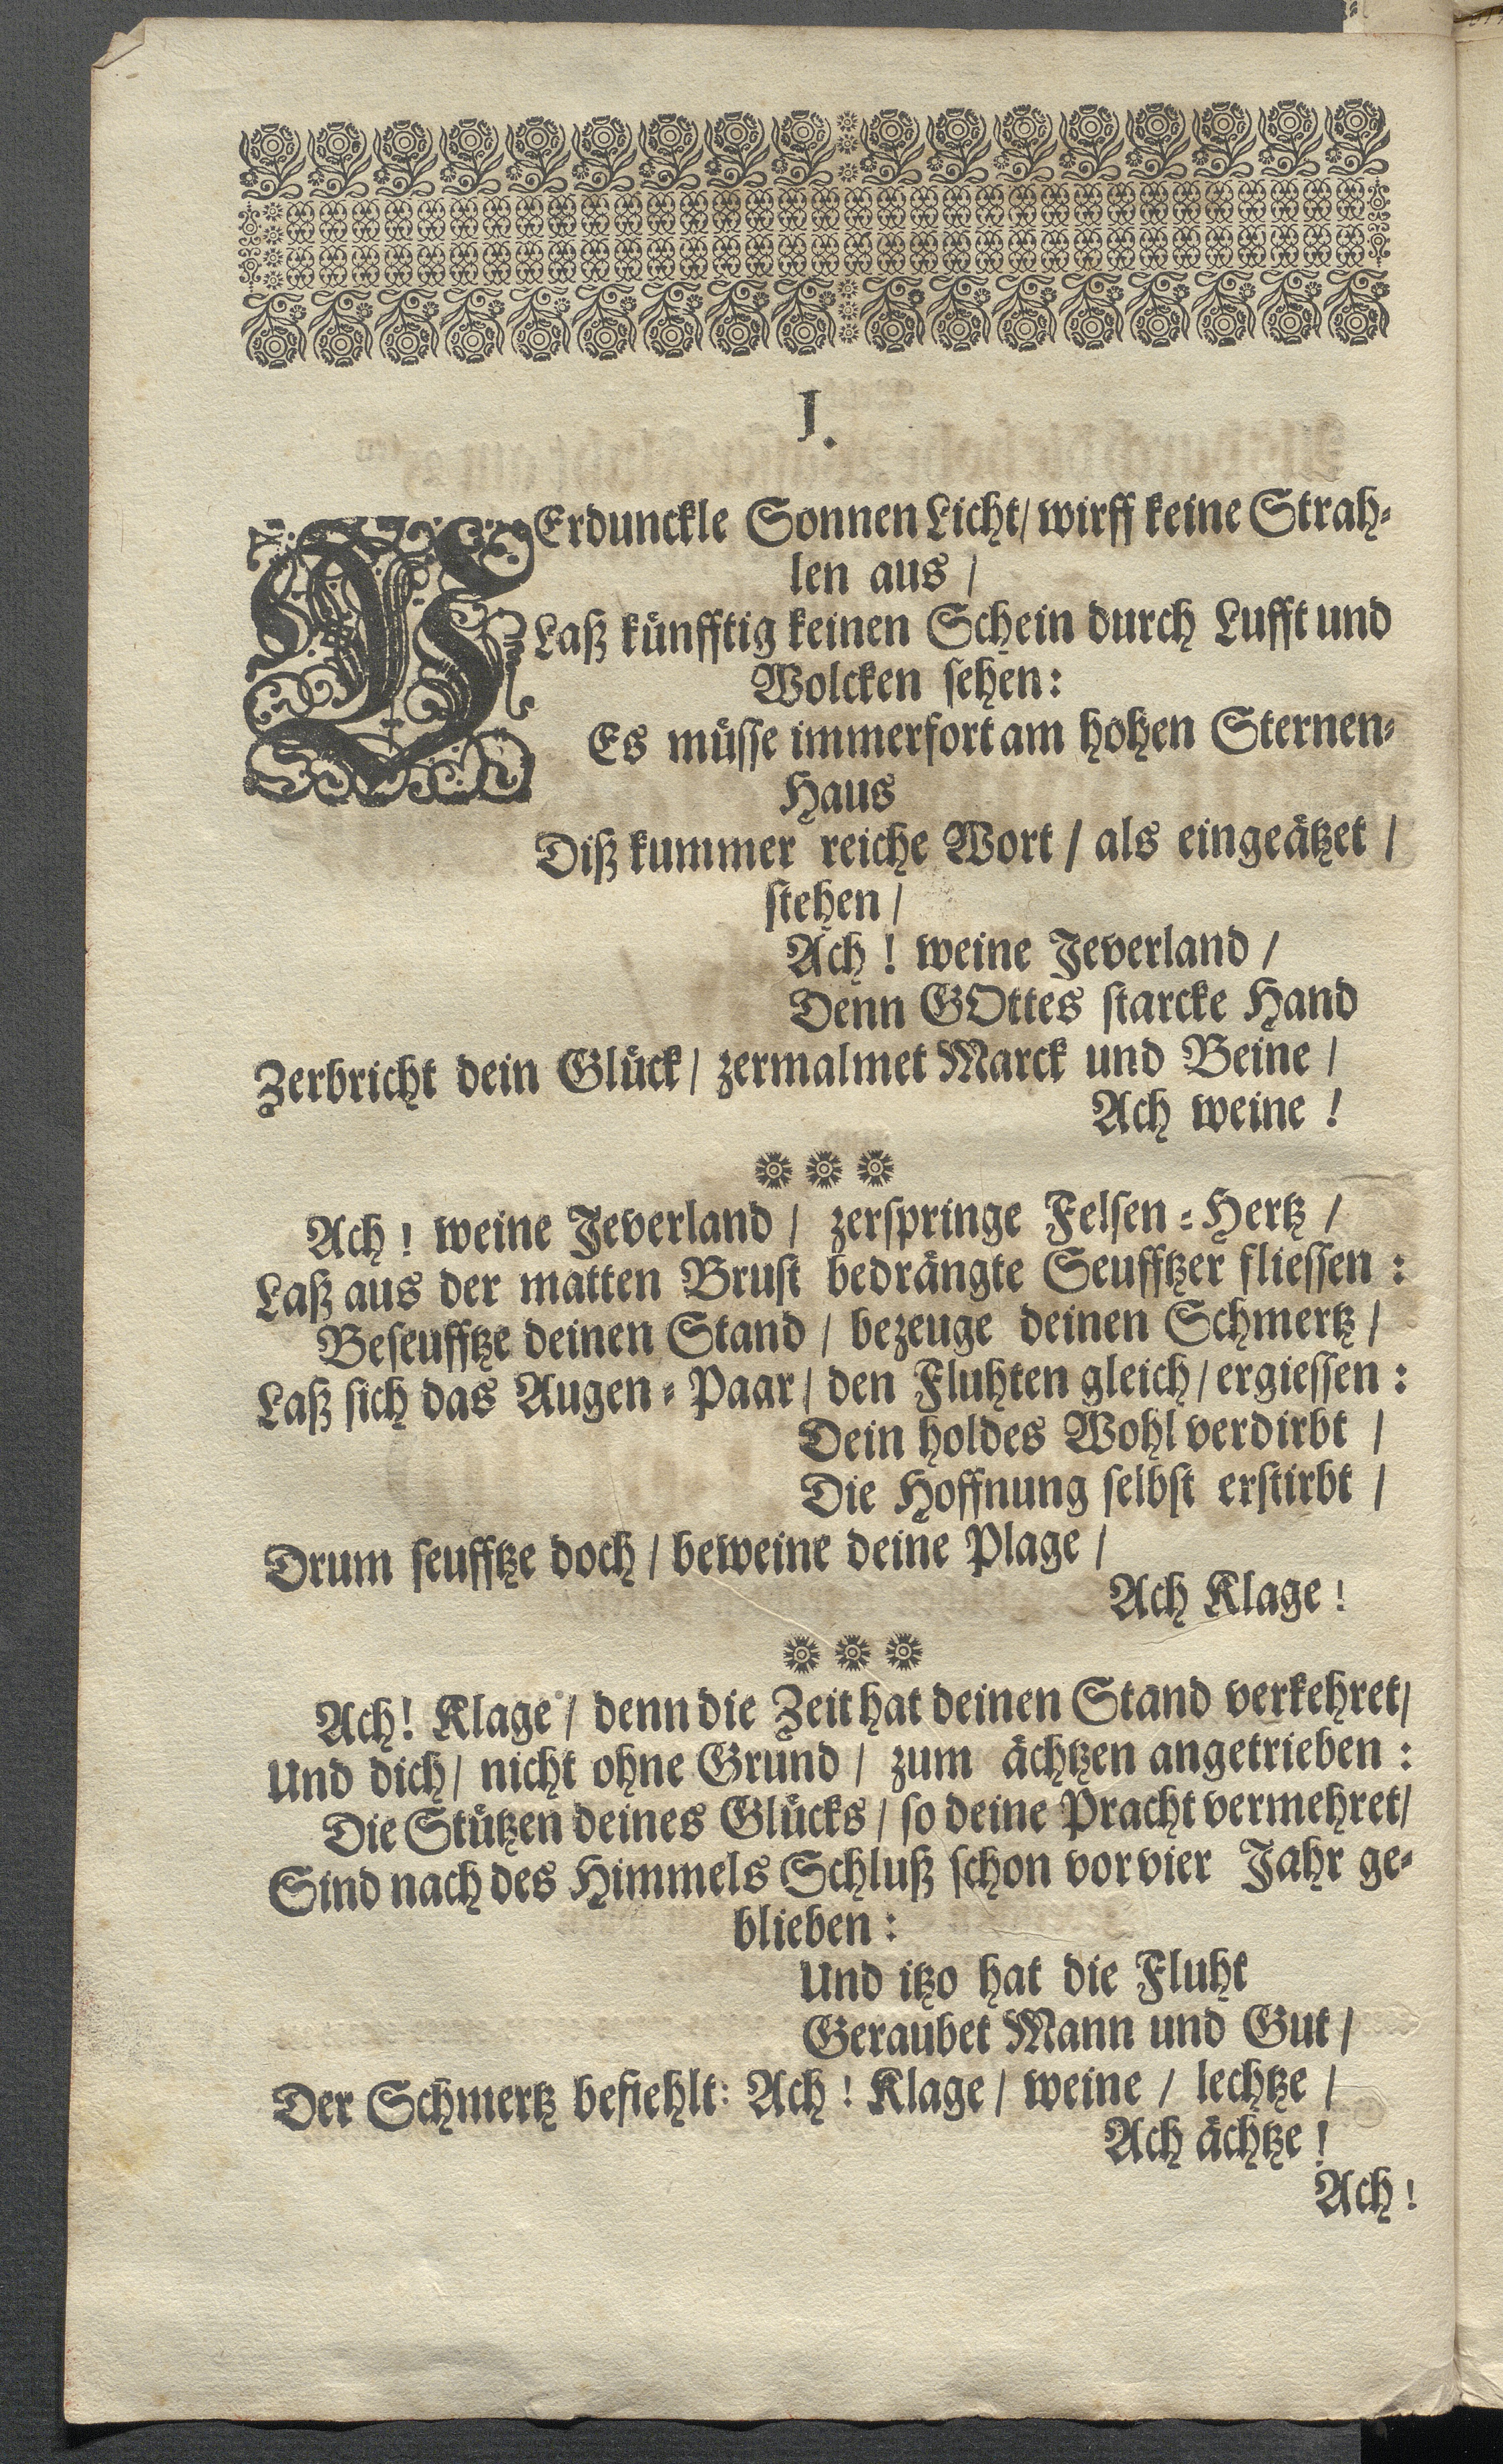 I.
VErdunckle Sonnen Licht/ wirff keine Strah-
len aus /
Laß künfftig keinen Schein durch Lufft und
Wolcken sehen:
Es müsse immerfort am hohen Sternen-
Haus
Diß kummer reiche Wort / als eingeätzet /
stehen /
Ach ! weine Jeverland /
Denn GOttes starcke Hand
Zerbricht dein Glück / zermalmet Marck und Beine /
Ach weine !
Ach ! weine Jeverland / zerspringe Felsen-Hertz /
Laß aus der matten Brust bedrängte Seufftzer fliessen :
Beseufftze deinen Stand / bezeuge deinen Schmertz /
Laß sich das Augen-Paar / den Fluhten gleich / ergiessen :
Dein holdes Wohl verdirbt /
Die Hoffnung selbst erstirbt /
Drum seufftze doch / beweine deine Plage /
Ach Klage !
Ach! Klage / denn die Zeit hat deinen Stand verkehret/
Und dich / nicht ohne Grund / zum ächtzen angetrieben :
Die Stützen deines Glücks / so deine Pracht vermehret/
Sind nach des Himmels Schluß schon vor vier Jahr ge-
blieben :
Und itzo hat die Fluht
Geraubet Mann und Gut /
Der Schmertz befiehlt: Ach ! Klage / weine / lechtze /
Ach ächtze !
Ach !